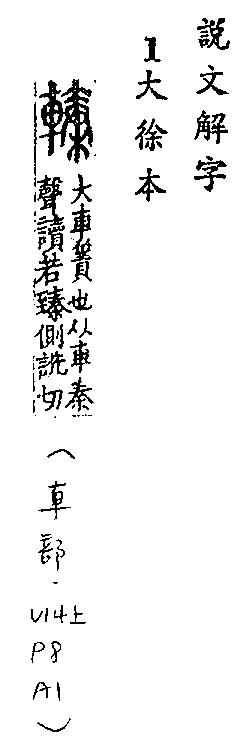 說文解字
1大徐本
轃
大車簀也从車秦
聲讀若臻側詵切
(車部.
V14上
P8
A1)